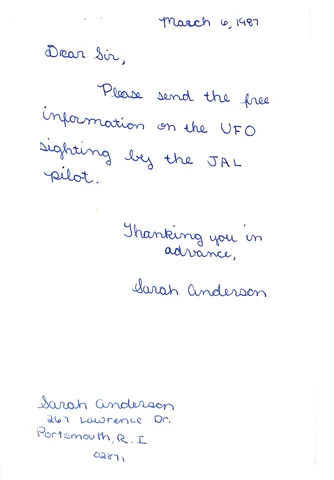 March 6, 1987
Dear Sir,
Please send the free
information on the UFO
sighting by the JAL
pilot.
Thanking you in
advance,
Sarah Anderson
Sarah Anderson
267 Lawrence Dr.
Portsmouth, R. I.
02871